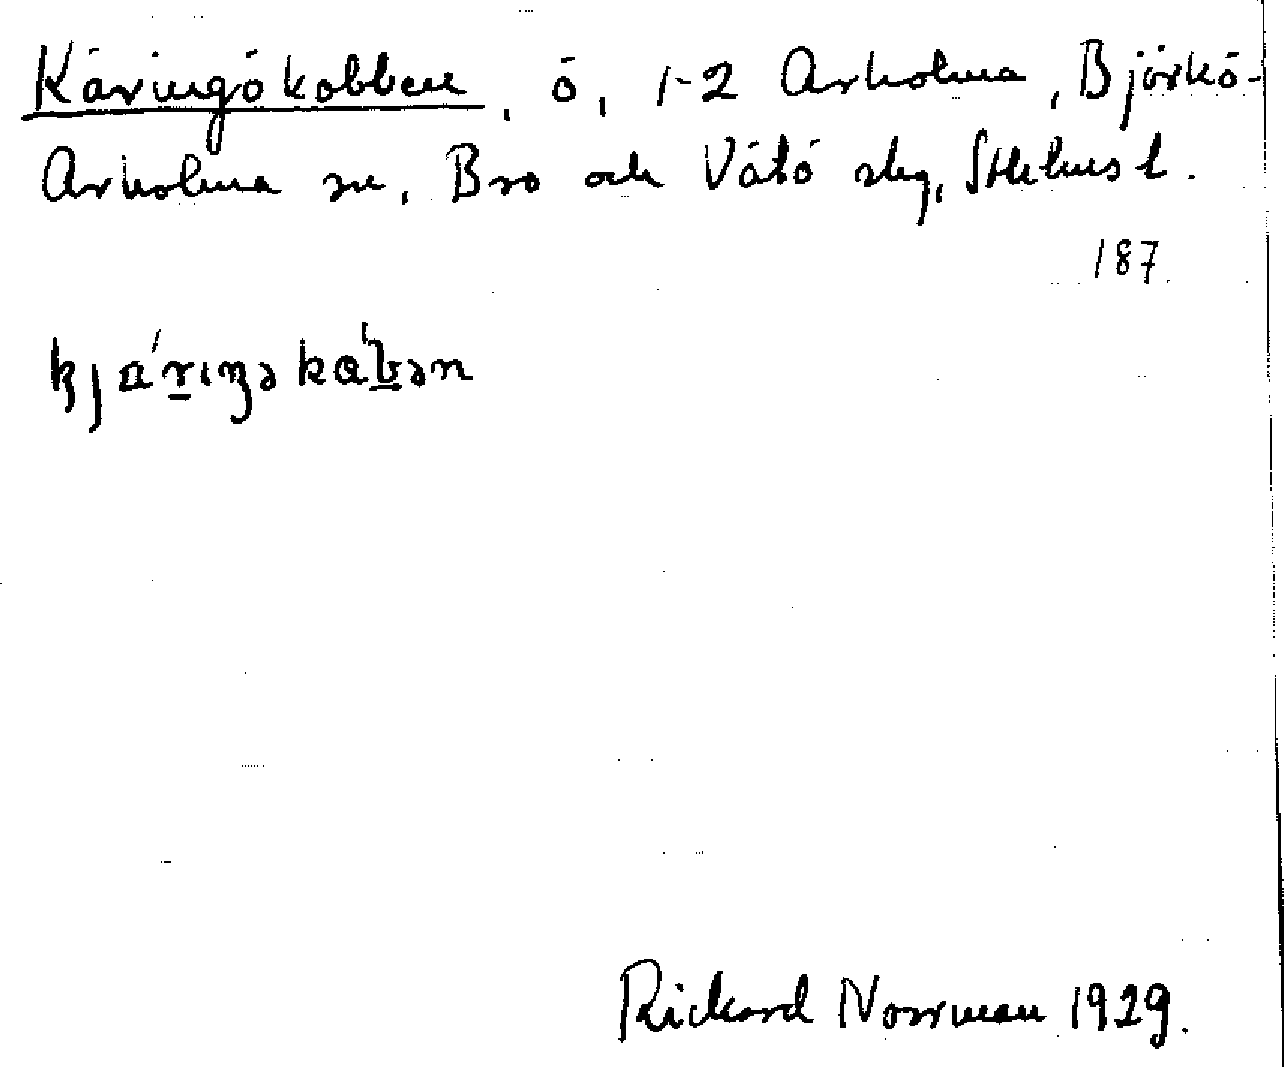 Käringökobben, ö, 1-2 Arholma, Björkö-
Arholma sn, Bro och Vätö slg, Sthlms l.
187
kjä́riŋəkåb́ən
Rickard Norrman 1929.